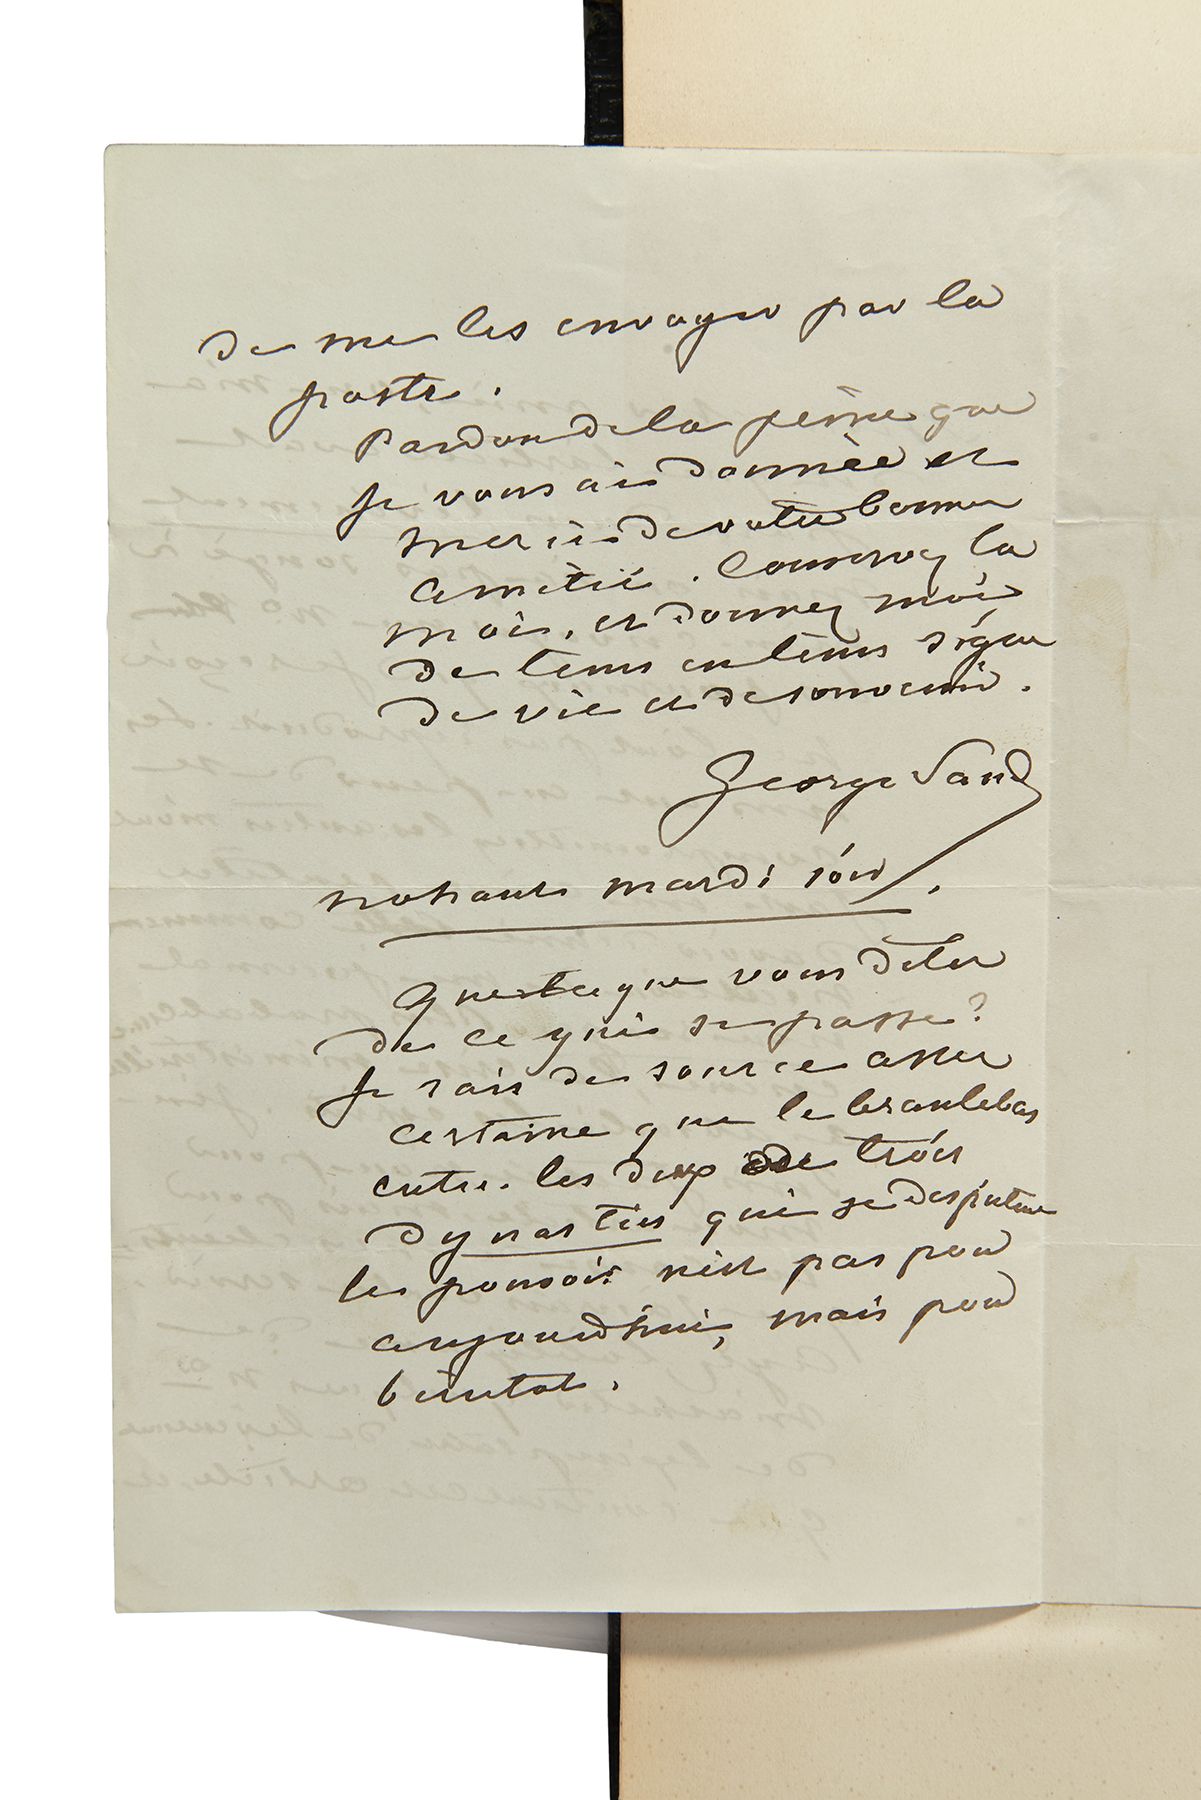 de me les envoyer par la
poste.
Pardon de la peine que
je vous ai donnée et
merci de votre bonne
amitié. Conservez la
moi, et donnez moi
de tems en tems signe
de vie et de souvenir.
George Sand
nohant mardi soir.
Qu'est ce que vous dites
de ce qui se passe?
Je sais de source assez
certaine que le branlebas
entre les deux ou trois
dynasties qui se disputent
le pouvoir n'est pas pour
aujourd'hui, mais pour
bientot.